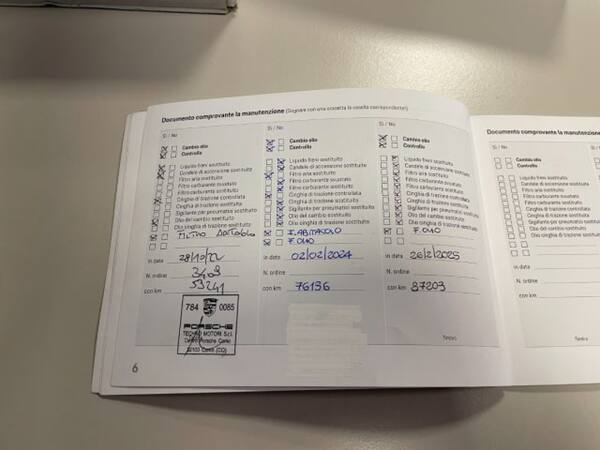 Documento comprovante la manutenzione (Segnare con una crocetta la casella corrispondente!)
Sì / No
Cambio olio
Controllo
Liquido freni sostituito
Candele di accensione sostituite
Filtro aria sostituito
Filtro carburante sostituito
Cinghia di trazione controllata
Cinghia di trazione sostituita
Sigillante per pneumatici sostituito
Olio del cambio sostituito
Olio cinghia di trazione sostituito
FILTRO
in data 28/10/22
N. ordine 3409
con km 59241
784 0085
PORSCHE
TECHNO MOTORI S.r.l.
Centro Porsche
Sì / No
Cambio olio
Controllo
Liquido freni sostituito
Candele di accensione sostituite
Filtro aria sostituito
Filtro carburante sostituito
Cinghia di trazione controllata
Cinghia di trazione sostituita
Sigillante per pneumatici sostituito
Olio del cambio sostituito
F. OLIO
in data 02/02/2024
N. ordine
con km 76136
Sì / No
Cambio olio
Controllo
Liquido freni sostituito
Candele di accensione sostituite
Filtro aria sostituito
Filtro carburante sostituito
Cinghia di trazione controllata
Cinghia di trazione sostituita
Sigillante per pneumatici sostituito
Olio del cambio sostituito
F. OLIO
in data 26/2/2025
N. ordine
con km 87203
Timbro
6
Documento comprovante la manutenzione
Sì / No
Cambio olio
Controllo
Liquido freni sostituito
Candele di accensione sostituite
Filtro aria sostituito
Filtro carburante sostituito
Cinghia di trazione controllata
Cinghia di trazione sostituita
Sigillante per pneumatici sostituito
Olio del cambio sostituito
in data
N. ordine
con km
Timbro